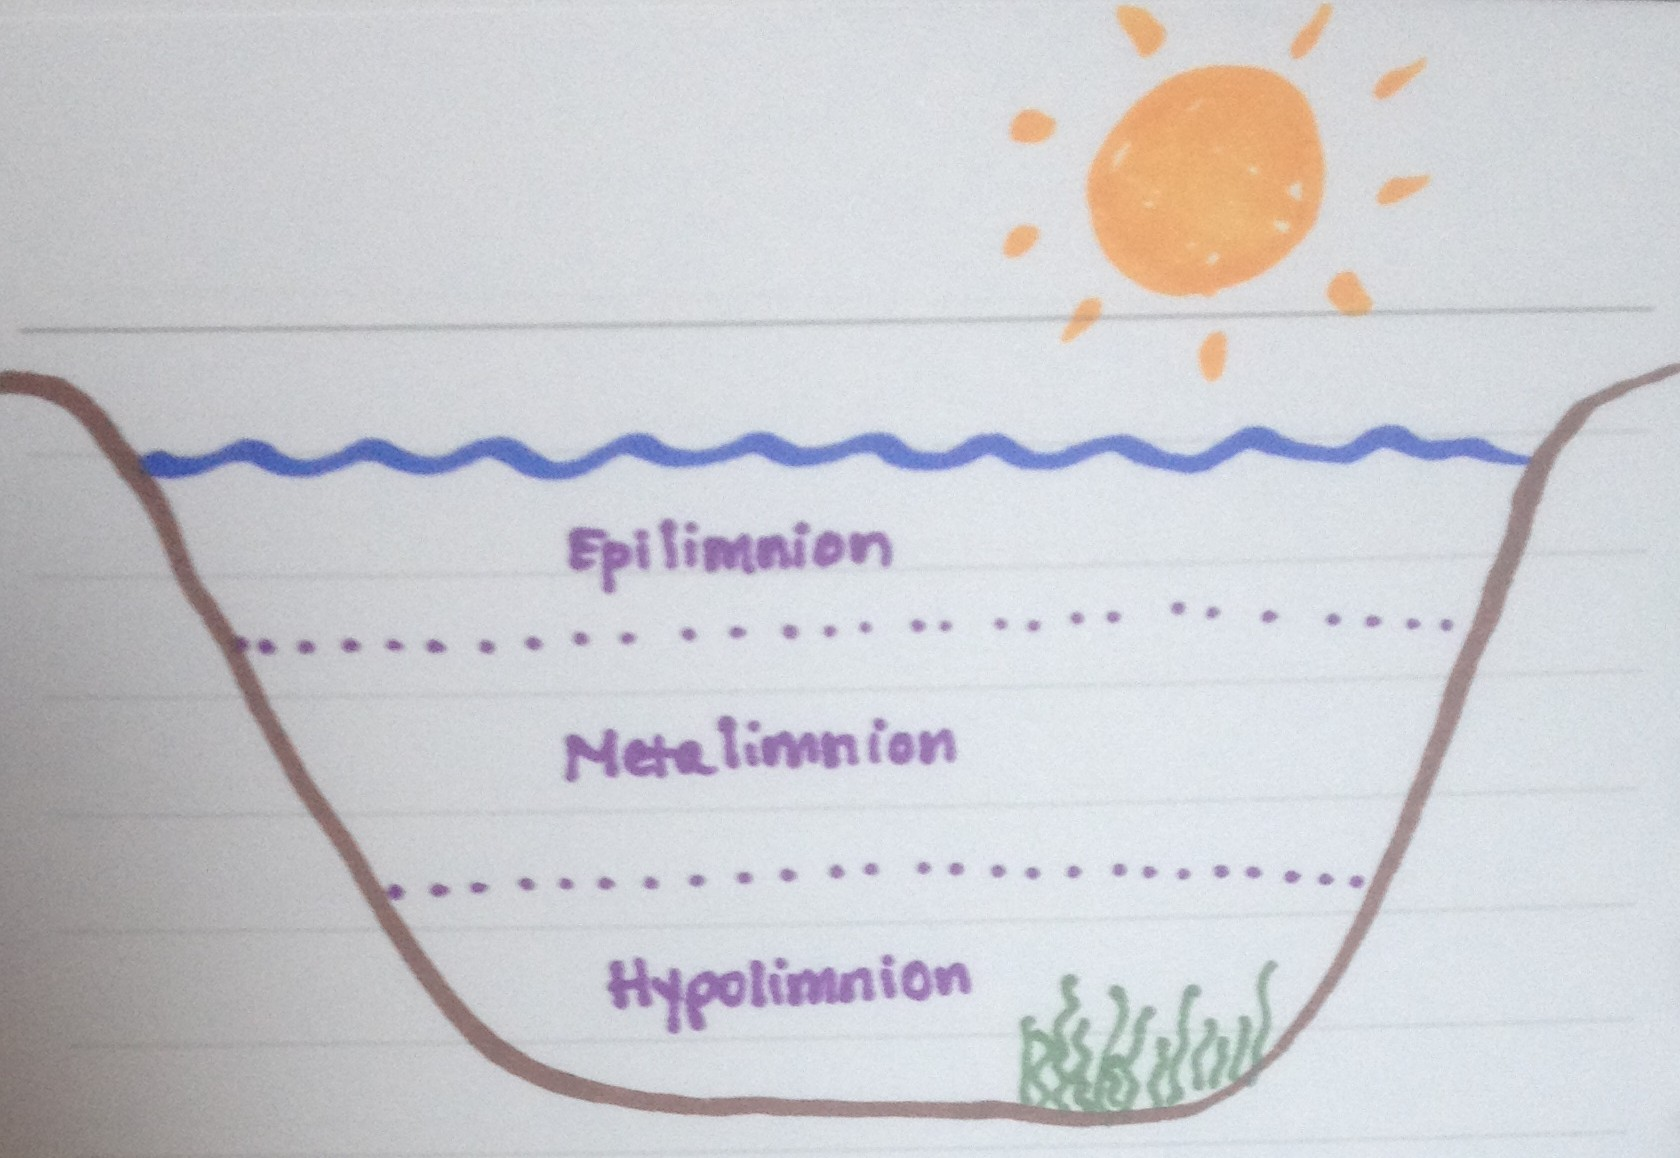 Epilimnion
Metalimnion
Hypolimnion